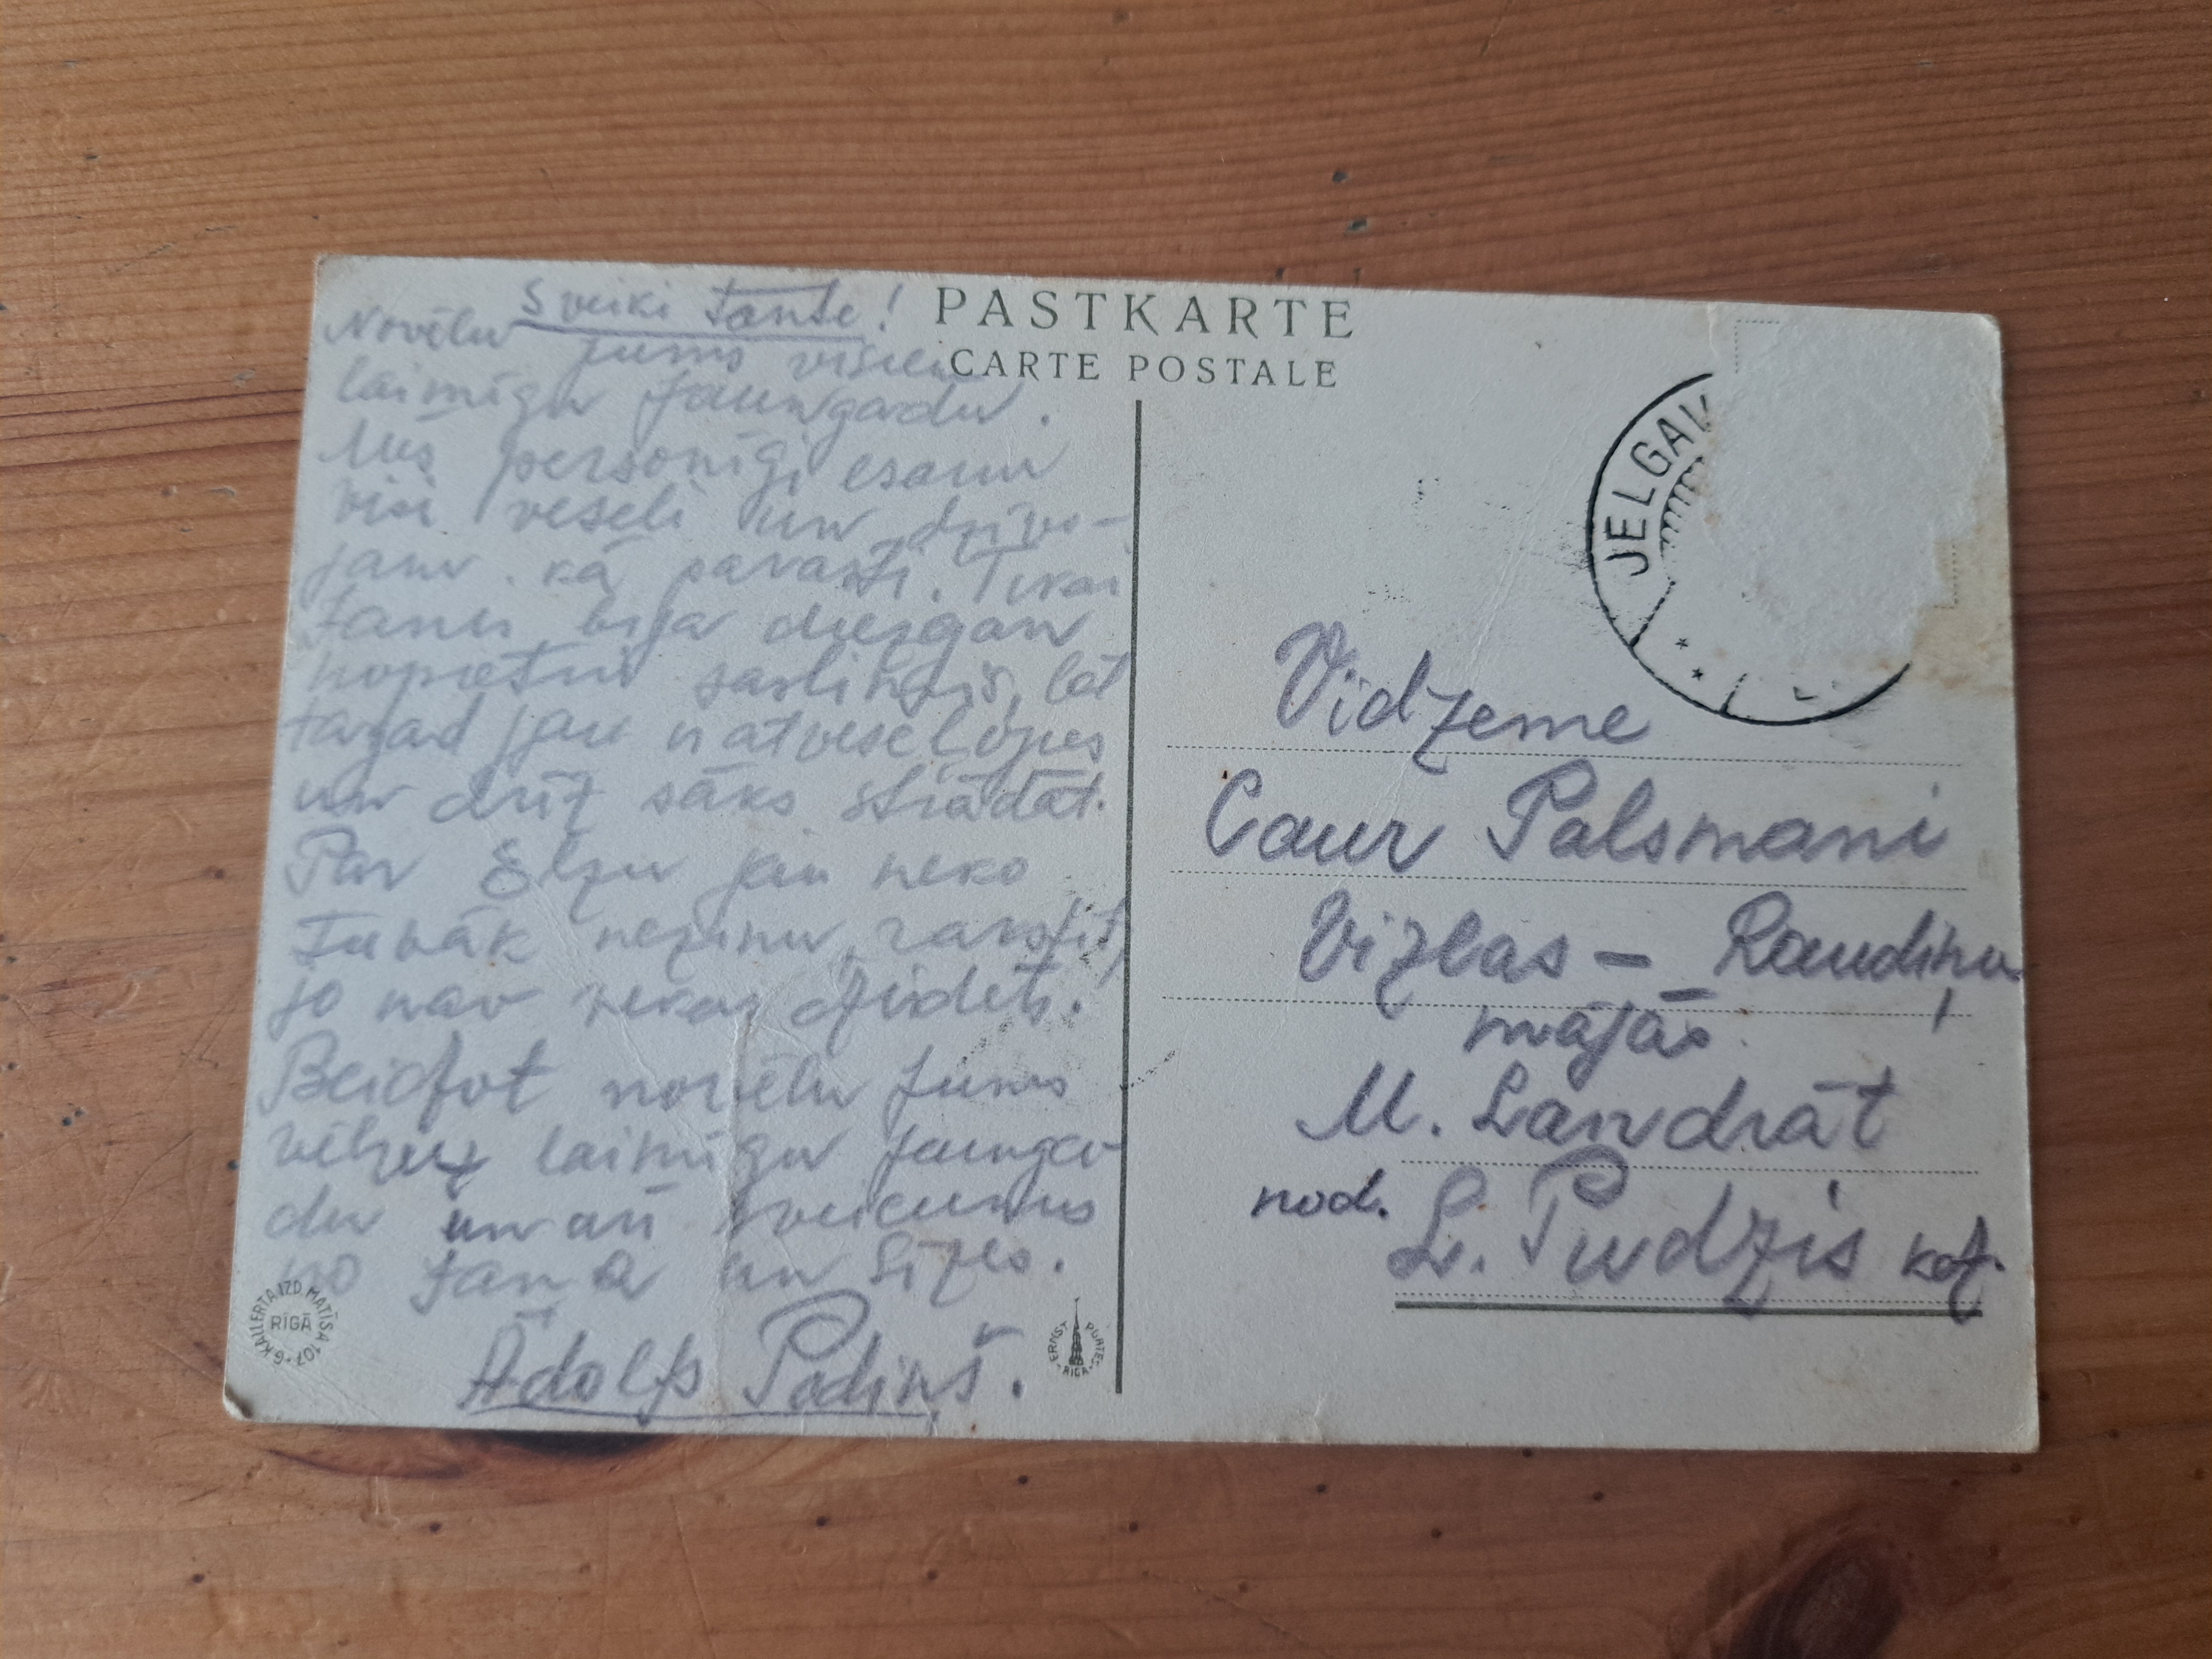 Sveiki Tante!
Novēlu jums visiem
laimīgu Jaungadu.
Mēs personīgi esam
visi veseli un dzīvo-
jam kā parasti. Tikai
Janis bija diezgan
nopietni saslimis, bet
tagad jau izveseļojies
un drīz sāks strādāt.
Par Elzu jau neko
tuvāk nezinu rakstīt,
jo nav nekas dzirdēts.
Beidzot novēlu Jums
vēlreiz laimīgu jaunga-
du un arī sveicienus
no Jaņa un Līzes.
Ādolfs Podiņš.
G. KALLERTA IZD. MATĪSA 107
RĪGĀ
ERNST PLATES RĪGĀ
PASTKARTE
CARTE POSTALE
JELGAV
Vidzeme
Caur Palsmani
Vizlas – Raudiņu
mājās
M. Landrāt
nod. L. Pudzis kdz.